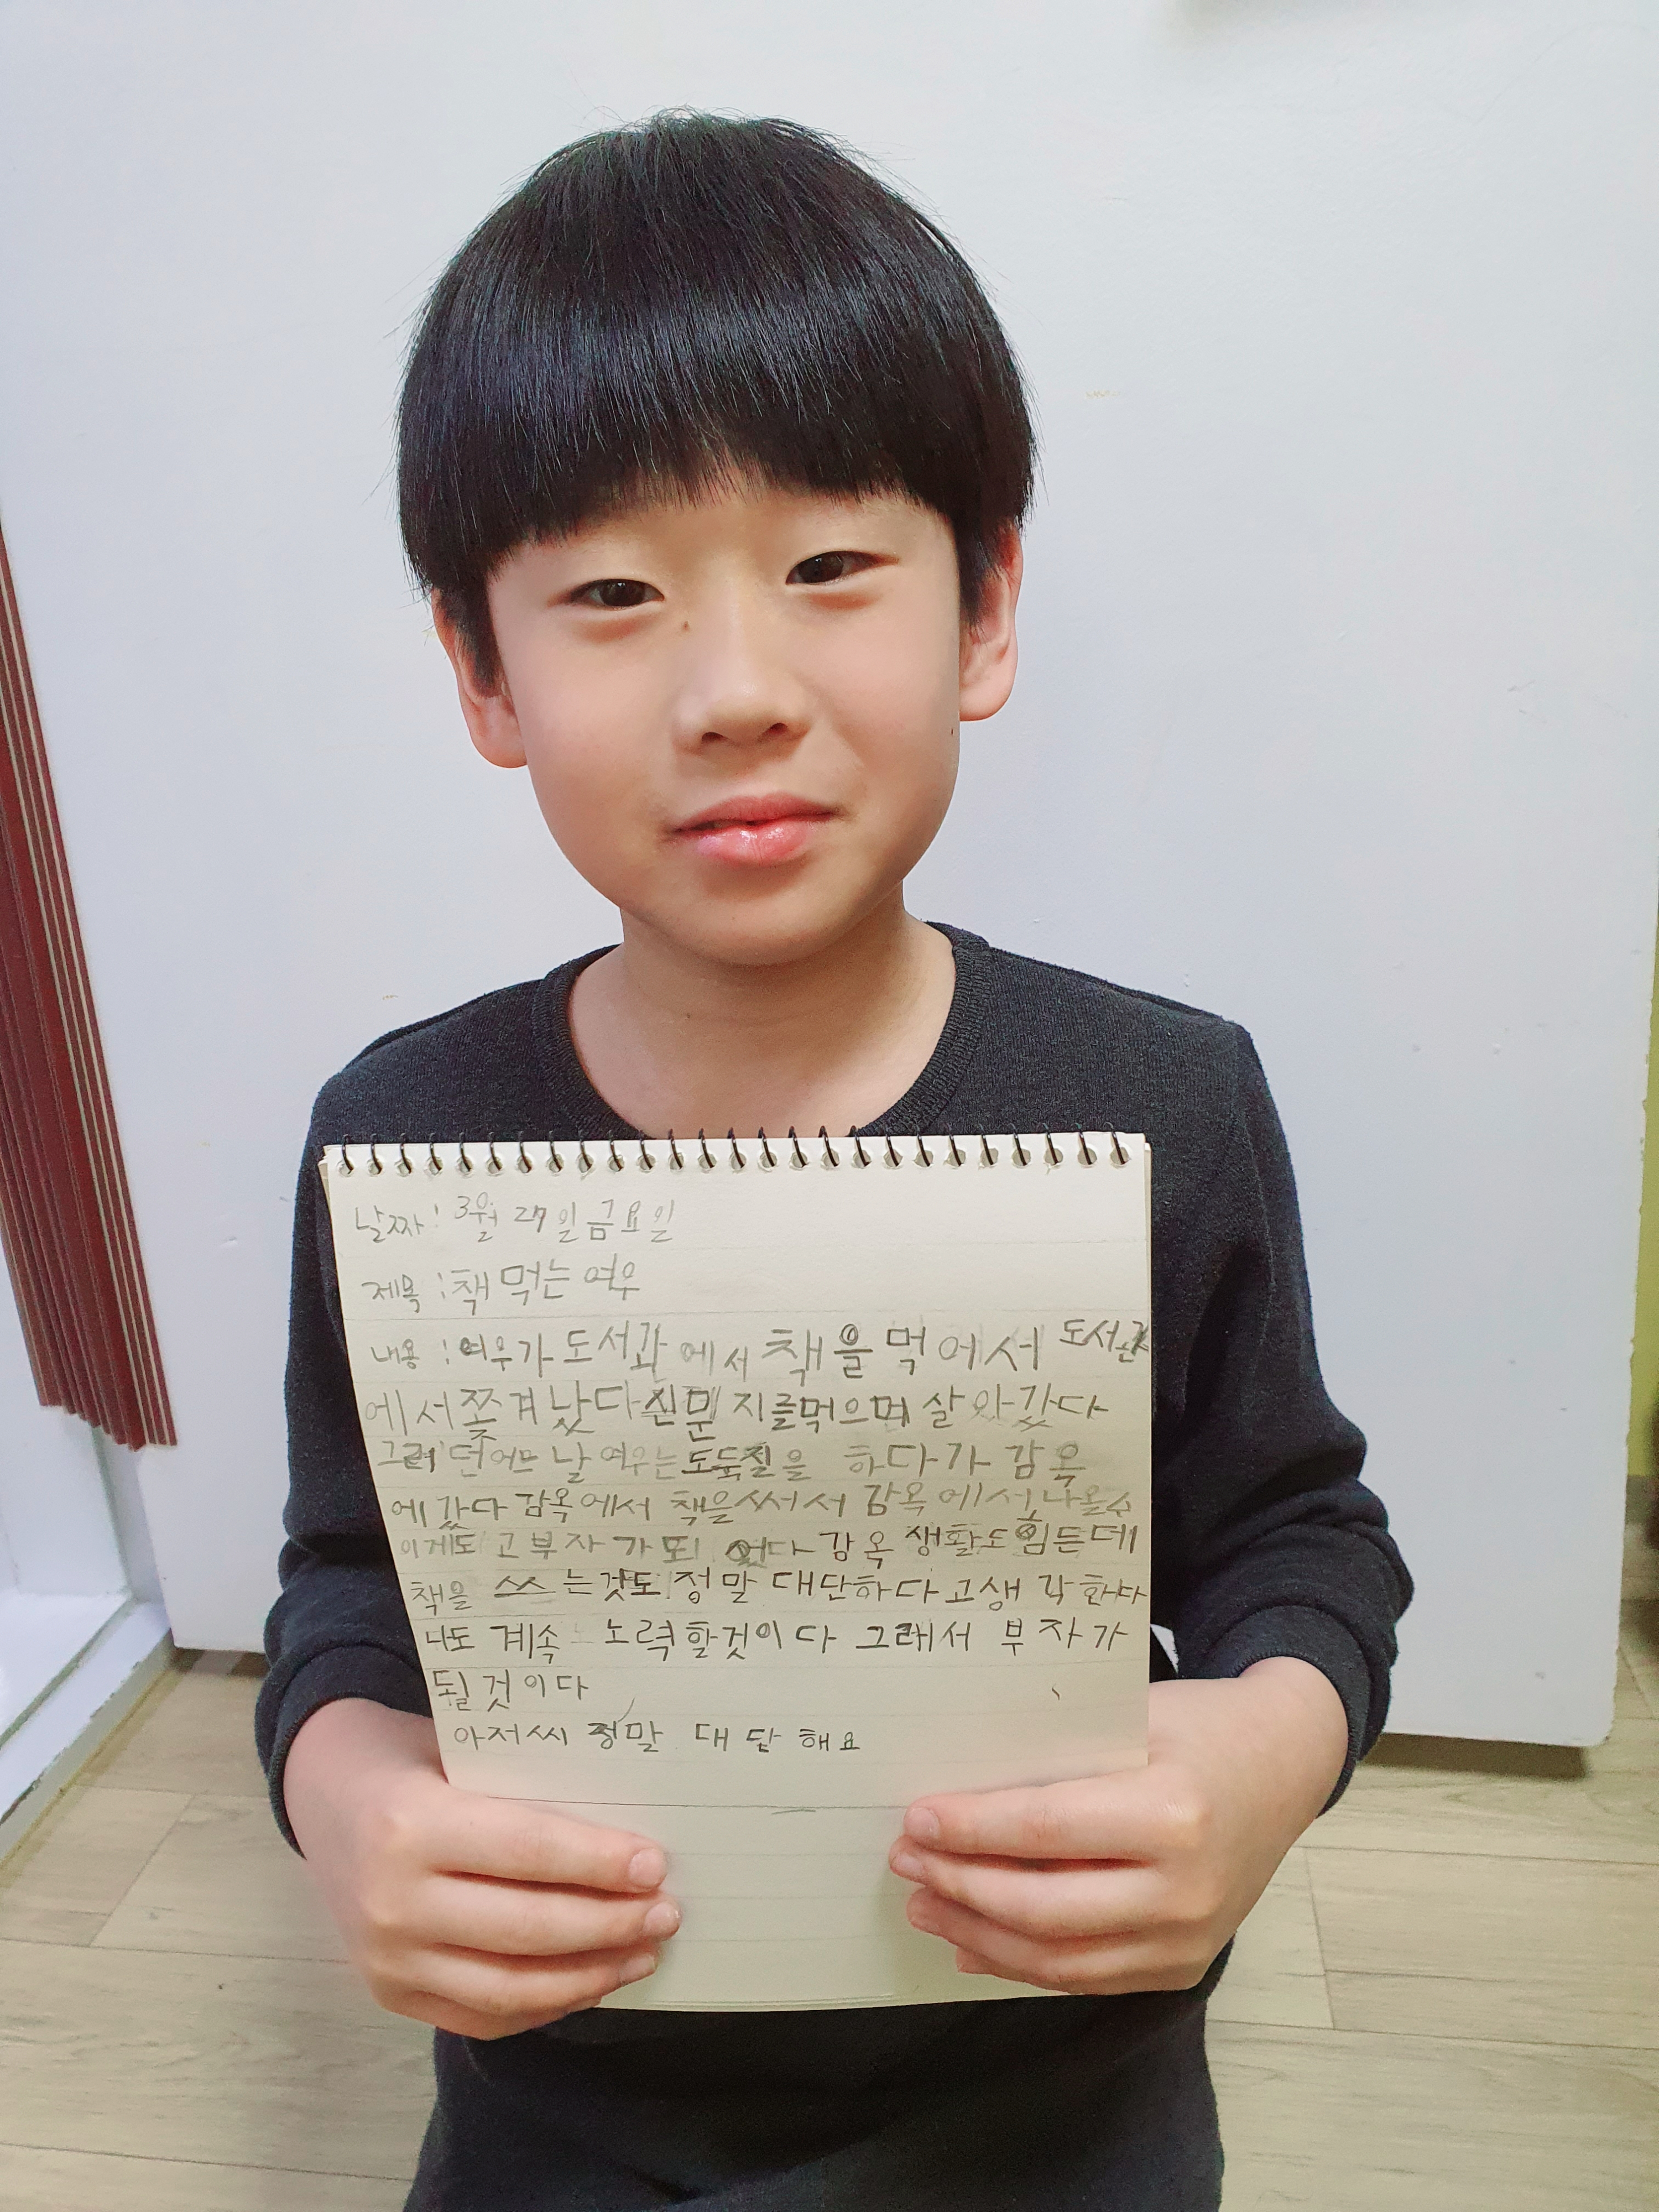 날짜: 3월 27일 금요일
제목: 책 먹는 여우
내용: 여우가 도서관에서 책을 먹어서 도서관
에서 쫓겨났다 신문지를 먹으며 살아갔다
그러던 어느 날 여우는 도둑질을 하다가 감옥
에 갔다 감옥에서 책을 써서 감옥에서 나올 수
이게 도고 부자가 되었다 감옥 생활도 힘든데
책을 쓰는 것도 정말 대단하다고 생각한다
나도 계속 노력할 것이다 그래서 부자가
될 것이다
아저씨 정말 대단해요